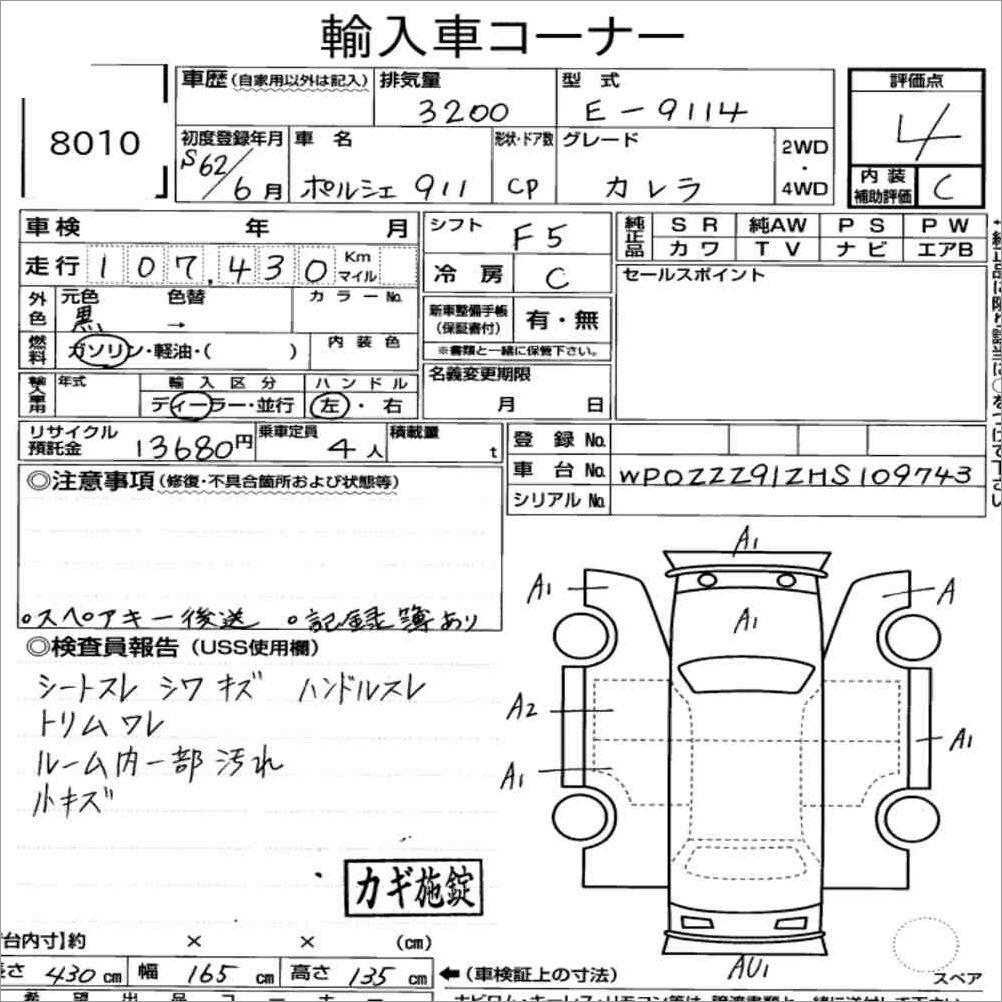 輸入車コーナー
8010
車歴(自家用以外は記入) 排気量 型式 評価点
3200 E-9114 4
初度登録年月 車名 形状・ドア数 グレード 2WD・4WD
S62/6月 ポルシェ 911 CP カレラ
内装補助評価 C
車検 年 月 シフト F5
純正品 SR 純AW PS PW
カワ TV ナビ エアB
走行 107,430 Km マイル 冷房 C
セールスポイント
外色 元色 色替 カラーNo.
黒 →
新車整備手帳(保証書付) 有・無
※書類と一緒に保管下さい。
燃料 ガソリン・軽油・( ) 内装色
輸入車用 年式 輸入区分 ハンドル
ディーラー・並行 左・右
名義変更期限
月 日
リサイクル預託金 13680円 乗車定員 4人 積載量 t
登録No.
車台No. WP0ZZZ91ZHS109743
シリアルNo.
◎注意事項(修復・不具合箇所および状態等)
。スペアキー後送 。記録簿あり
◎検査員報告(USS使用欄)
シートスレ シワ キズ ハンドルスレ
トリムワレ
ルーム内一部汚れ
小キズ
A1
A1 A
A1
A2
A1
A1
AU1
カギ施錠
台内寸】約 × × (cm)
長さ 430cm 幅 165cm 高さ 135cm
←(車検証上の寸法)
スペア